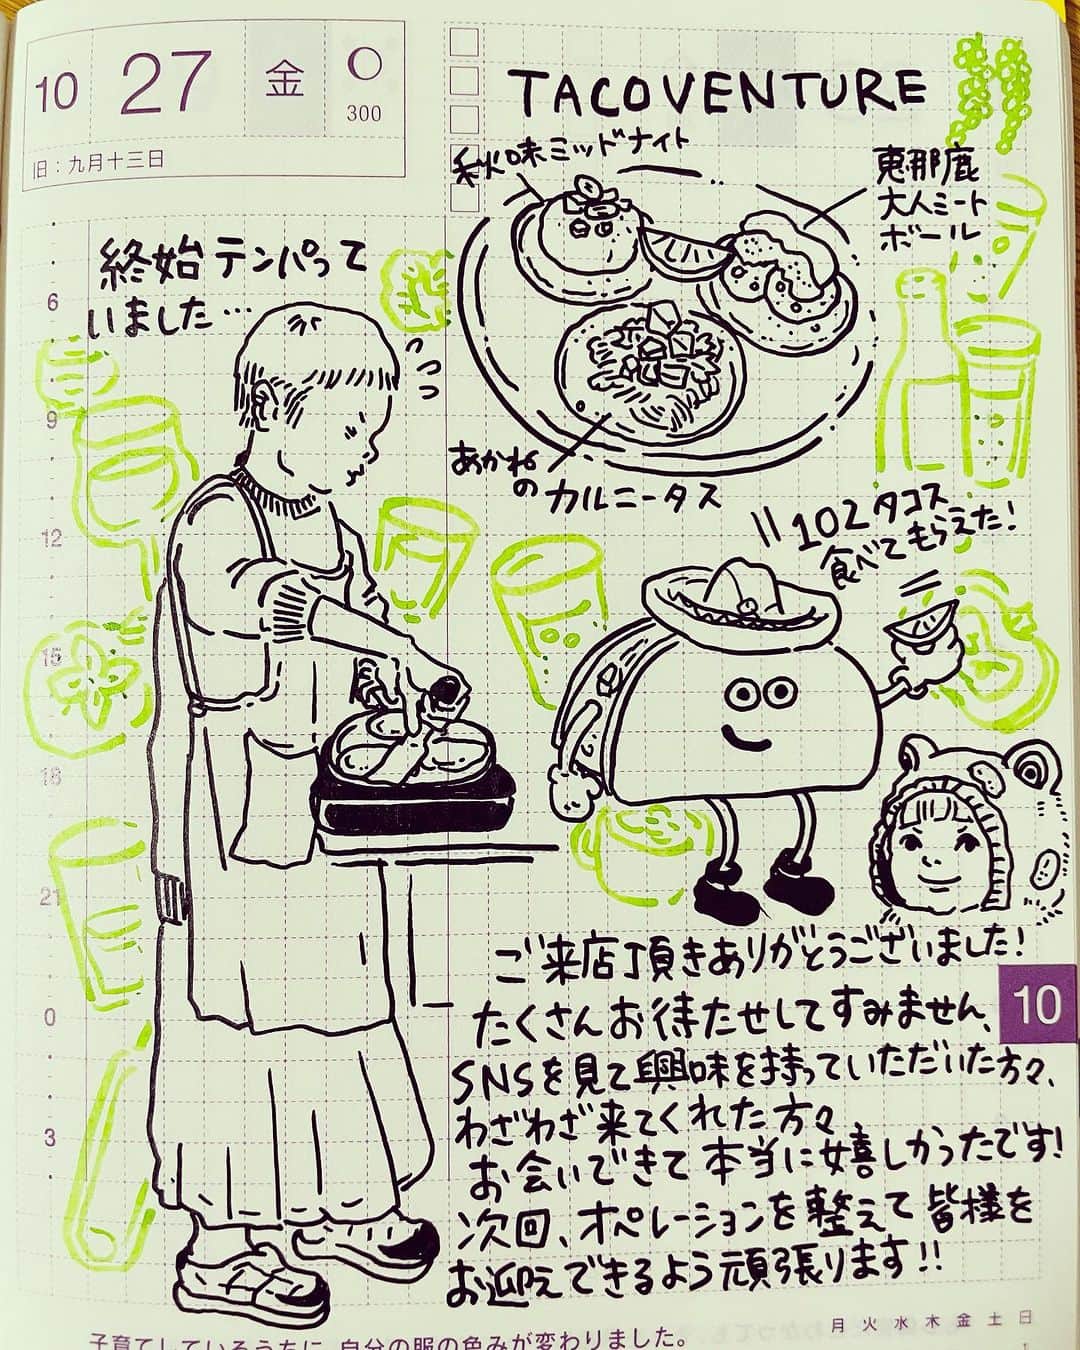 10 27 金
300
旧：九月十三日
TACOVENTURE
秋味ミッドナイト
恵那鹿
大人ミート
ボール
終始テンパって
いました…
6
9
12
15
18
21
0
3
あかね
の カルニータス
102タコス
食べてもらえた！
ご来店頂きありがとうございました！
たくさんお待たせしてすみません、
SNSを見て興味を持っていただいた方々、
わざわざ来てくれた方々、
お会いできて本当に嬉しかったです！
次回、オペレーションを整えて皆様を
お迎えできるよう頑張ります!!
10
月 火 水 木 金 土 日
子育てしているうちに、自分の服の色みが変わりました。